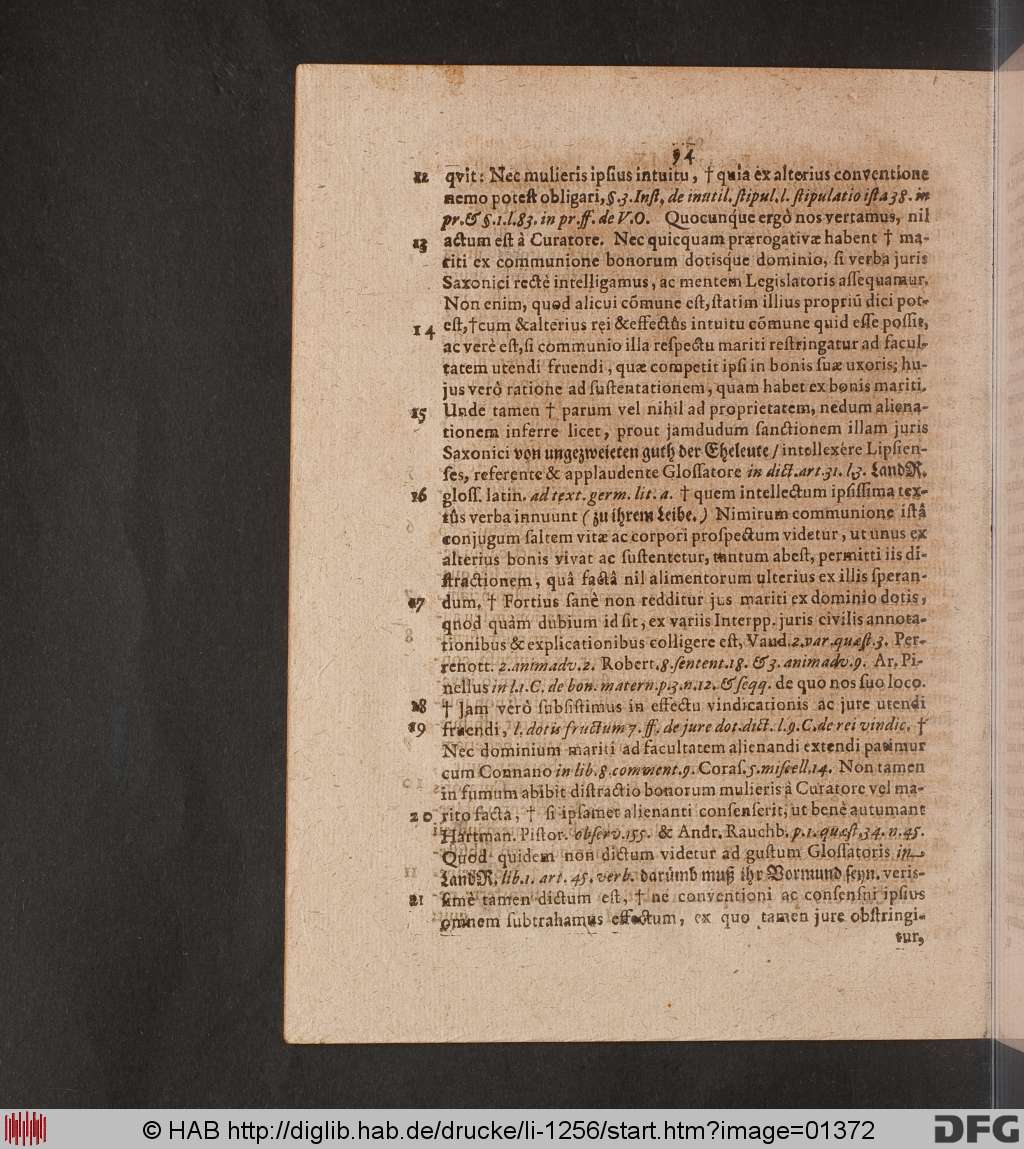 94
12 qvit: Nec mulieris ipsius intuitu, † quia ex alterius conventione
nemo potest obligari, §. 3. Inst, de inutil. stipul. l. stipulatio ista 38. in
pr. & §. 1. l. 83. in pr. ff. de V. O. Quocunque ergò nos vertamus, nil
13 actum est à Curatore. Nec quicquam prærogativæ habent † ma-
riti ex communione bonorum dotisque dominio, si verba juris
Saxonici rectè intelligamus, ac mentem Legislatoris assequamur.
Non enim, quod alicui cōmune est, statim illius propriū dici pot-
14 est, † cum & alterius rei & effectûs intuitu cōmune quid esse possit,
ac verè est, si communio illa respectu mariti restringatur ad facul-
tatem utendi fruendi, quæ competit ipsi in bonis suæ uxoris; hu-
jus verò ratione ad sustentationem, quam habet ex bonis mariti.
15 Unde tamen † parum vel nihil ad proprietatem, nedum aliena-
tionem inferre licet, prout jamdudum sanctionem illam juris
Saxonici von ungezweieten guth der Eheleute / intellexêre Lipsien-
ses, referente & applaudente Glossatore in dict. art. 31. l. 3. LandR.
16 gloss. latin. ad text. germ. lit. a. † quem intellectum ipsissima tex-
tûs verba innuunt (zu ihrem Leibe.) Nimirum communione istâ
conjugum saltem vitæ ac corpori prospectum videtur, ut unus ex
alterius bonis vivat ac sustentetur, tantum abest, permitti iis di-
stractionem, quâ factâ nil alimentorum ulterius ex illis speran-
17 dum. † Fortius sanè non redditur jus mariti ex dominio dotis,
quod quàm dubium id sit, ex variis Interpp. juris civilis annota-
tionibus & explicationibus colligere est, Vaud. 2. var. quæst. 3. Per-
renott. 2. animadv. 2. Robert. 8. sentent. 18. & 3. animadv. 9. Ar. Pi-
nellus in l. 1. C. de bon. matern. p. 3. n. 12. & seqq. de quo nos suo loco.
18 † Jam verò subsistimus in effectu vindicationis ac jure utendi
19 fruendi, l. dotis fructum 7. ff. de jure dot. dict. l. 9. C. de rei vindic. †
Nec dominium mariti ad facultatem alienandi extendi patimur
cum Connano in lib. 8. comment. 9. Coras. 5. miscell. 14. Non tamen
in fumum abibit distractio bonorum mulieris à Curatore vel ma-
20 rito facta, † si ipsamet alienanti consenserit, ut benè autumant
Hartman. Pistor. observ. 155. & Andr. Rauchb. p. 1. quæst. 34. n. 45.
Quod quidem non dictum videtur ad gustum Glossatoris in
LandR. lib. 1. art. 45. verb. darümb muß ihr Vormund seyn. veris-
21 simè tamen dictum est, † ne conventioni ac consensui ipsius
omnem subtrahamus effectum, ex quo tamen jure obstringi-
tur,
© HAB http://diglib.hab.de/drucke/li-1256/start.htm?image=01372
DFG